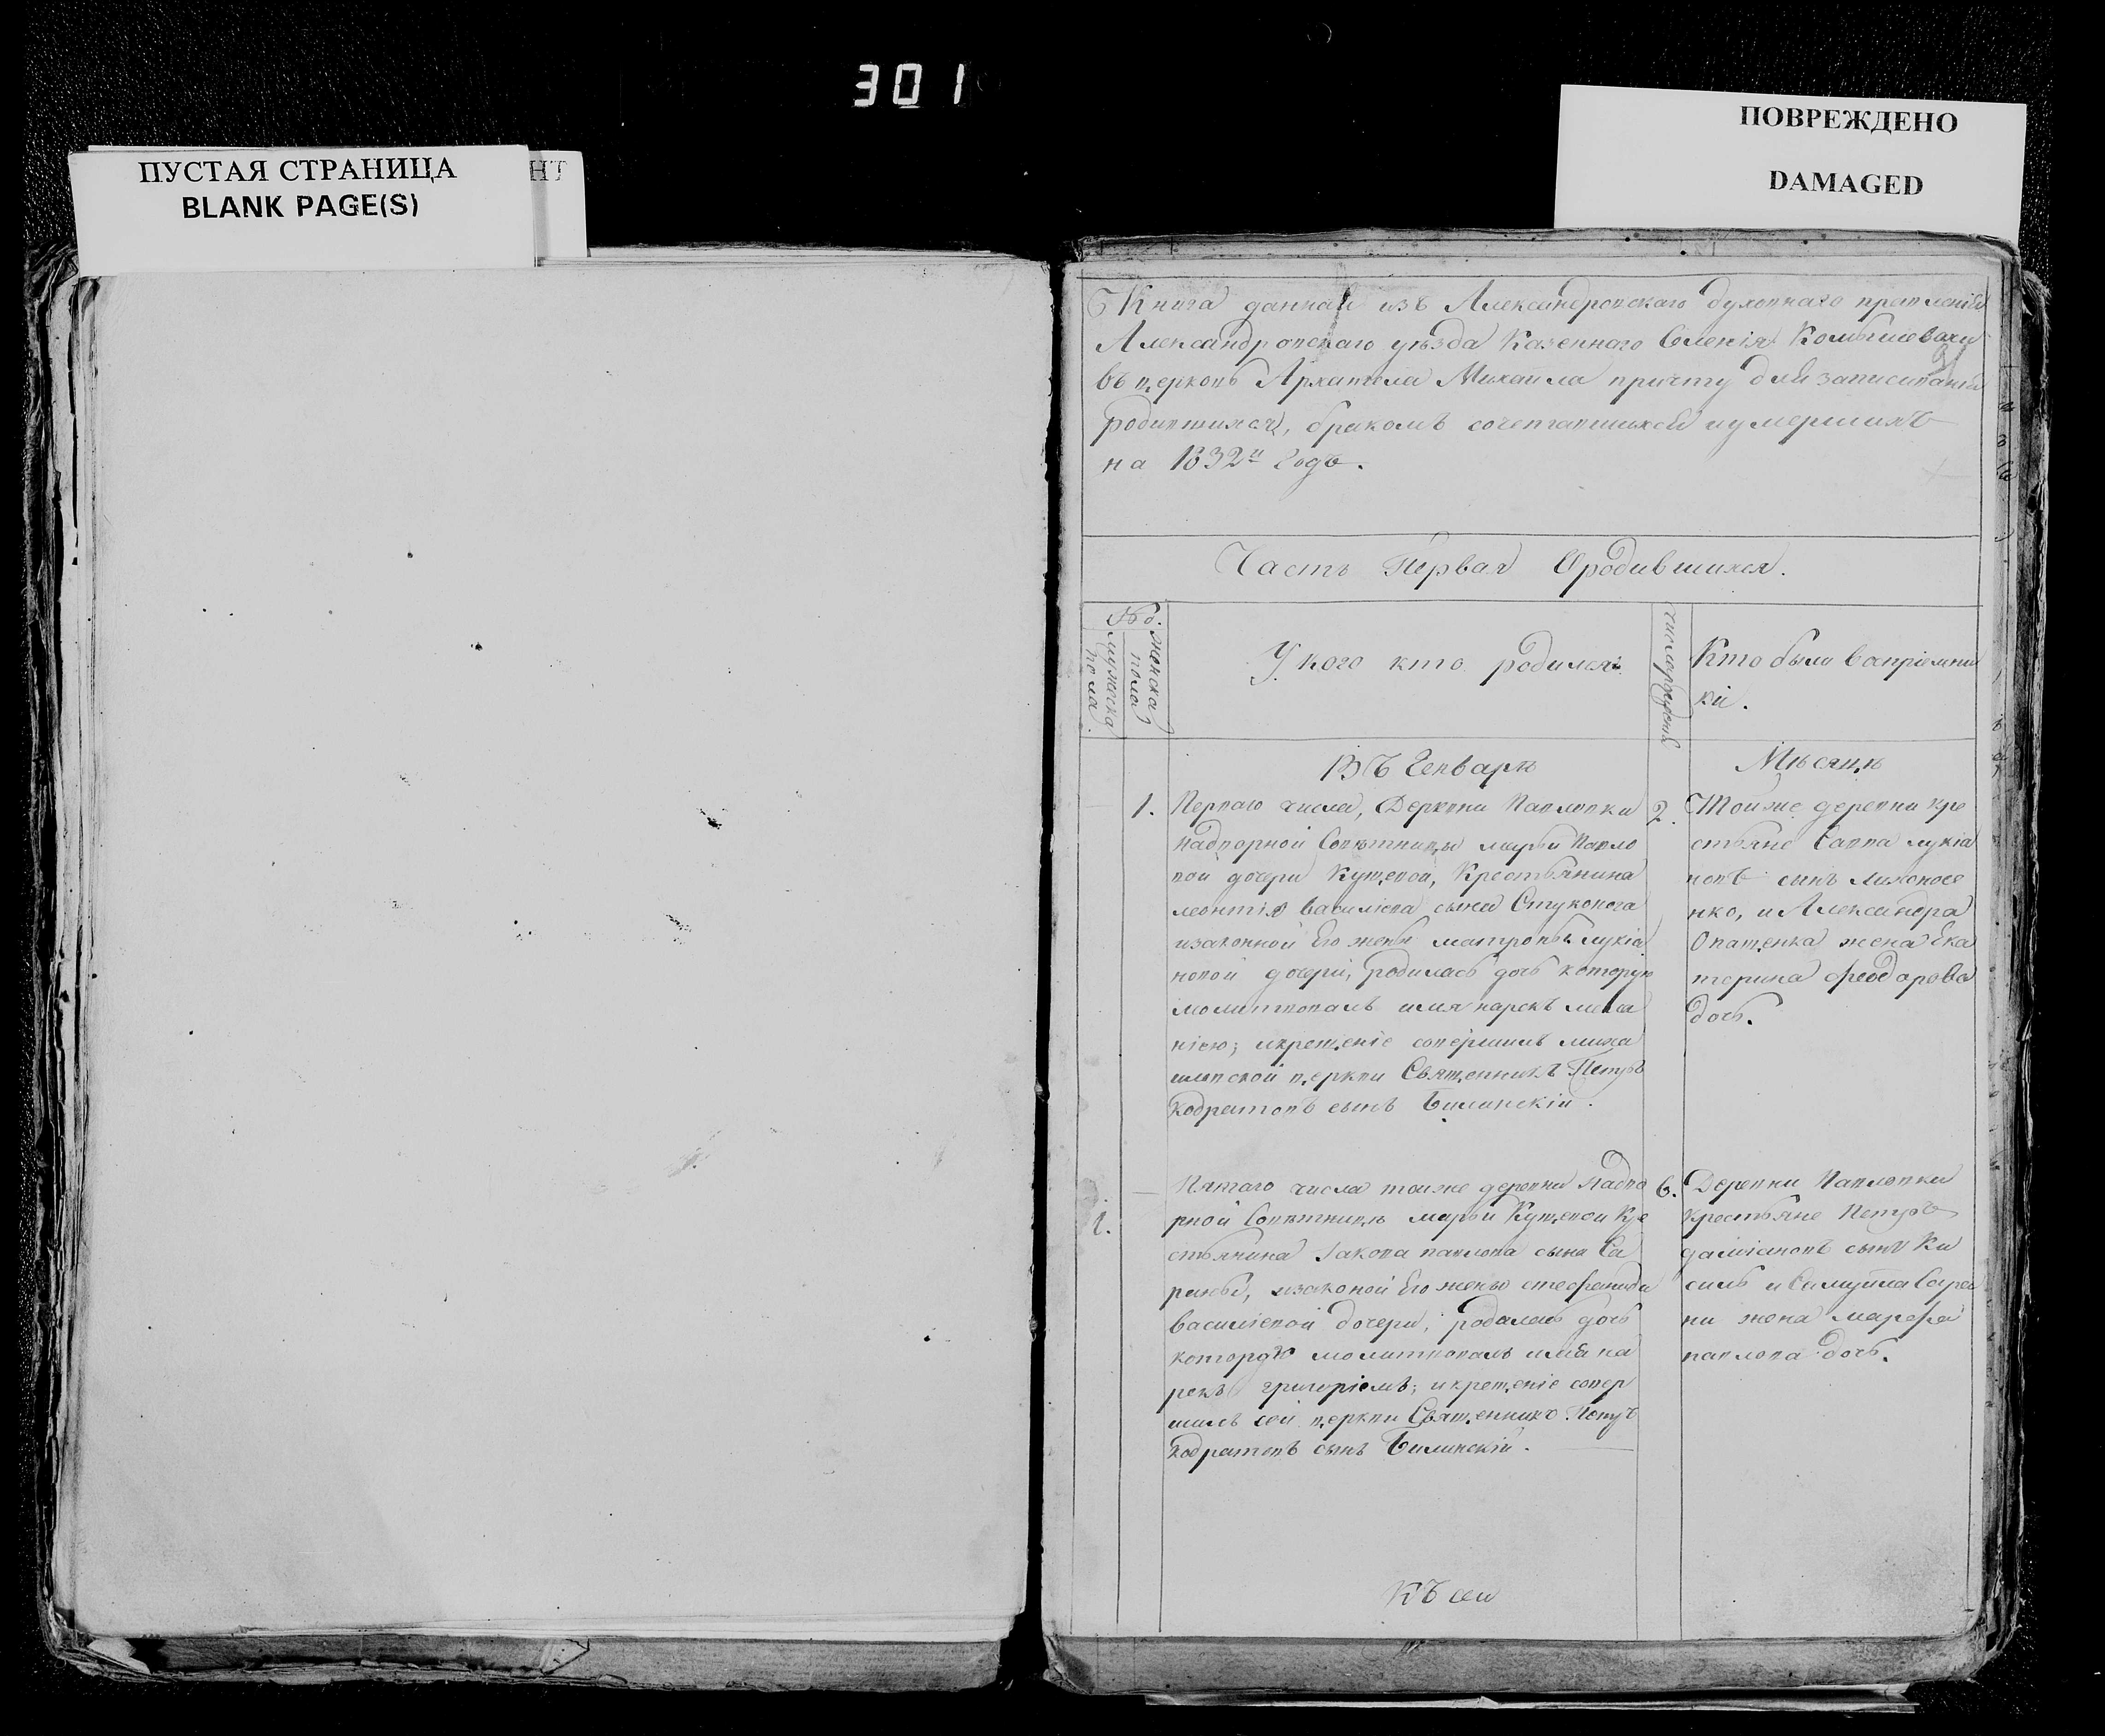 301
ПУСТАЯ СТРАНИЦА
BLANK PAGE(S)
НТ
ПОВРЕЖДЕНО
DAMAGED
Книга данная изъ Александровскаго духовнаго правленія
Александровскаго уѣзда Казенного Селенія Комышевахи
въ церковь Архангела Михаила причту для записыванія
родившихся, бракомъ сочетавшихся и умершихъ
на 1832й Годъ.
Часть Первая О родившихся.
№
мужеска пола.
женска пола
У кого кто родился
число рожденія
Кто были воспріемни
ки.
Въ Генварѣ
Мѣсяцѣ
1. Перваго числа, Деревни Павловки
Надворной Совѣтницы марьи Павло
вой дочери Кущевой, Крестьянина
леонтія василіева сына Стуконога
и законной Его жены матроны лукіа
новой дочери, родилась дочь которую
молитвовалъ имя нарекъ мела
ніею; и крещеніе совершилъ миха
иловской церкви Священникъ Петръ
Кодратовъ сынъ Билинскій.
2. Тойже деревни кре
стьяне Савва лукіа
новъ сынъ лихоносе
нко, и Александра
жена Ека
терина феодорова
дочь.
1. Пятаго числа тоиже деревни Надво
рной Совѣтницы марьи Кущевой Кре
стьянина Іакова павлова сына Са
и законой Его жены стефаниды
василіевой дочери, родилась дочь
которую молитвовалъ имя на
рекъ григоріемъ; и крещеніе совер
шилъ сей церкви Священникъ Петръ
Кодратовъ сынъ Билинскій.
6. Деревни Павловки
крестьяне Петръ
даміановъ сынъ Ки
силь и Самуила
жена марфа
павлова дочь.
КЪ сеи